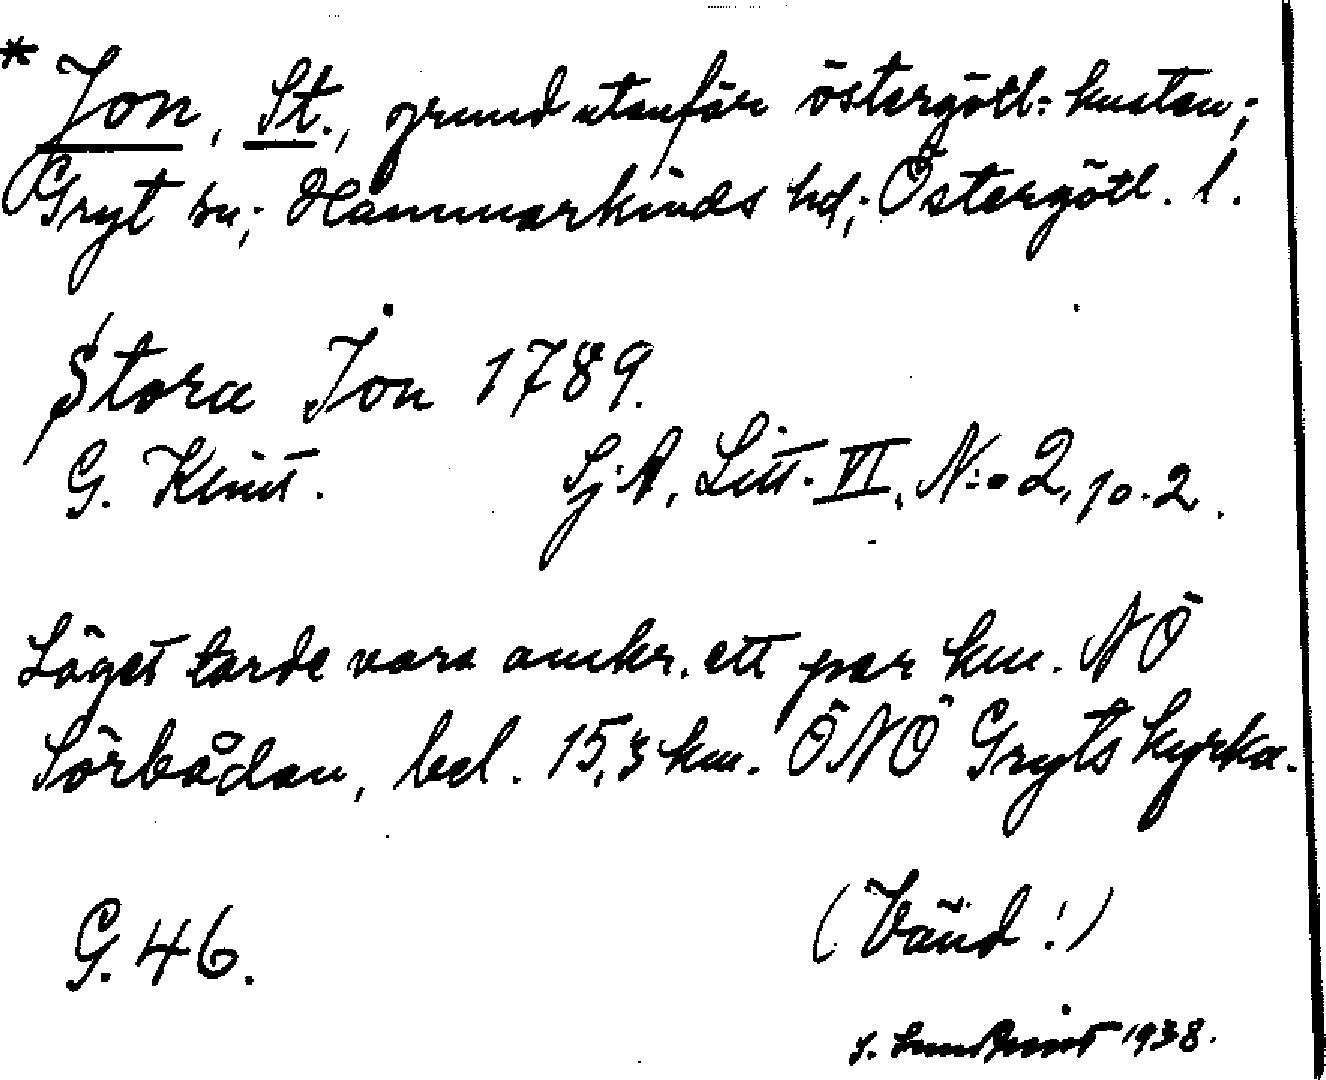 * Jon, St., grund utanför östergötl: kusten;
Gryt sn; Hammarkinds hd; Östergötl. l.
Stora Jon 1789.
G. Klint. Sj.A, Litt. VI, N:o 2, 10.2.
Läget torde vara omkr. ett par km. NÖ
Sörbådan, bel. 15,3 km. ÖNÖ Gryts kyrka.
G. 46. (Vänd!)
1938.